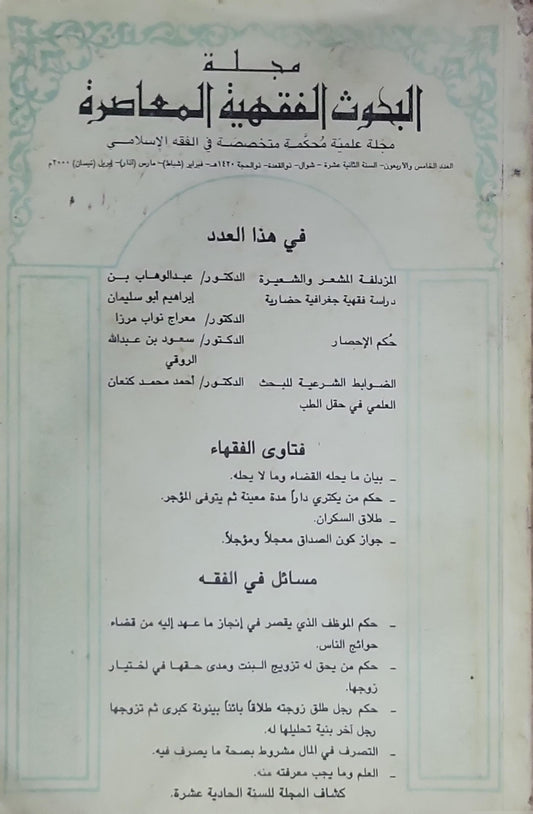 مجلة
البحوث الفقهية المعاصرة
مجلة علمية مُحكَّمة متخصصة في الفقه الإسلامي
العدد الخامس والأربعون - السنة الثانية عشرة - شوال - ذو القعدة - ذو الحجة ١٤٢٠هـ - فبراير (شباط) - مارس (آذار) - إبريل (نيسان) ٢٠٠٠م
في هذا العدد
المزدلفة المشعر والشعيرة الدكتور/ عبدالوهاب بن
دراسة فقهية جغرافية حضارية إبراهيم أبو سليمان
الدكتور/ معراج نواب مرزا
حُكم الإحصار الدكتور/ سعود بن عبدالله
الروقي
الضوابط الشرعية للبحث الدكتور/ أحمد محمد كنعان
العلمي في حقل الطب
فتاوى الفقهاء
- بيان ما يحله القضاء وما لا يحله.
- حكم من يكتري داراً مدة معينة ثم يتوفى المؤجر.
- طلاق السكران.
- جواز كون الصداق معجلاً ومؤجلاً.
مسائل في الفقه
- حكم الموظف الذي يقصر في إنجاز ما عهد إليه من قضاء
حوائج الناس.
- حكم من يحق له تزويج البنت ومدى حقها في اختيار
زوجها.
- حكم رجل طلق زوجته طلاقاً بائناً بينونة كبرى ثم تزوجها
رجل آخر بنية تحليلها له.
- التصرف في المال مشروط بصحة ما يصرف فيه.
- العلم وما يجب معرفته منه.
كشاف المجلة للسنة الحادية عشرة.